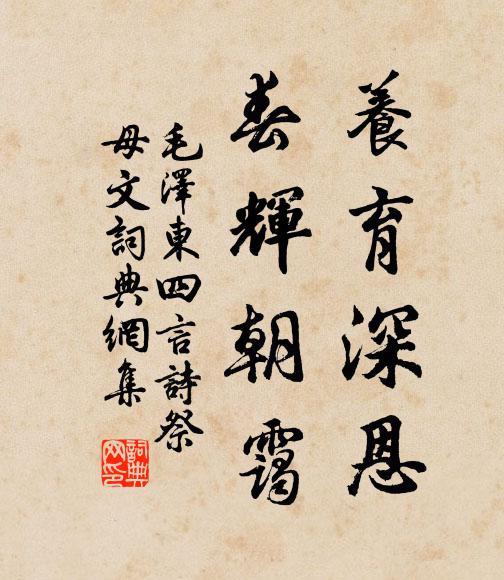 養育深恩
春輝朝靄
毛澤東四言詩祭
母文詞典網集
詞典
网印